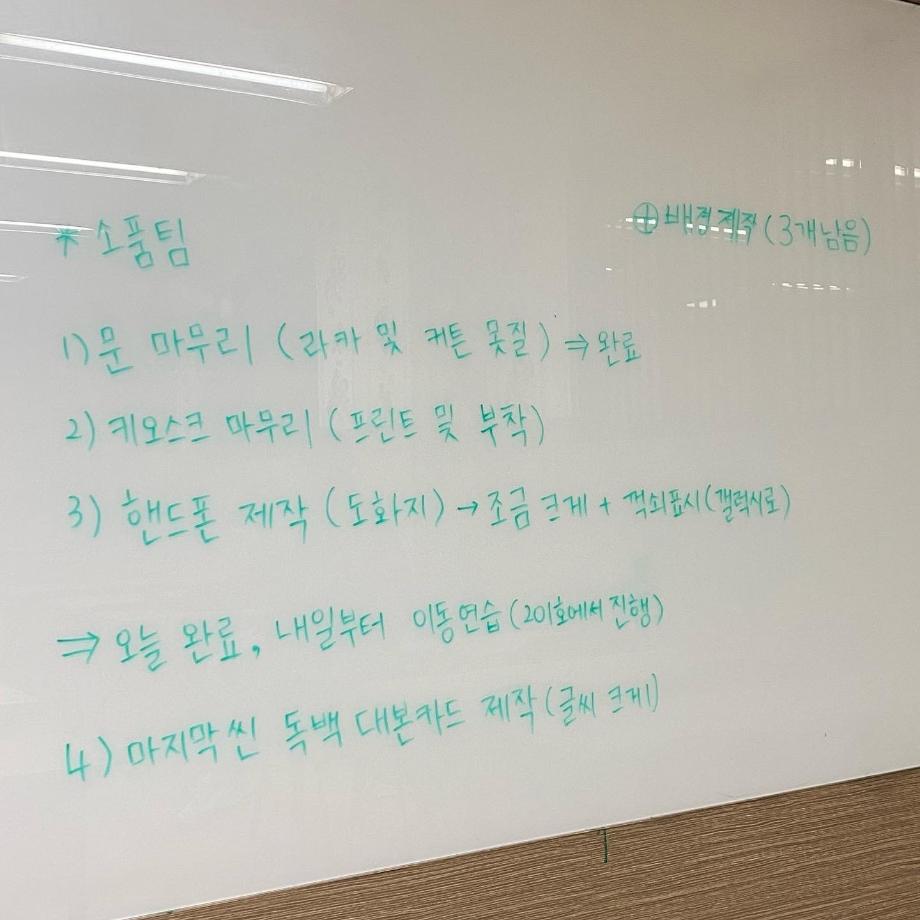 * 소품팀
⊕ 배경 제작 (3개 남음)
1) 문 마무리 (라카 및 커튼 못질) ⇒ 완료
2) 키오스크 마무리 (프린트 및 부착)
3) 핸드폰 제작 (도화지) → 조금 크게 + 꺽쇠표시 (갤럭시로)
⇒ 오늘 완료, 내일부터 이동연습 (201호에서 진행)
4) 마지막 씬 독백 대본카드 제작 (글씨 크게)